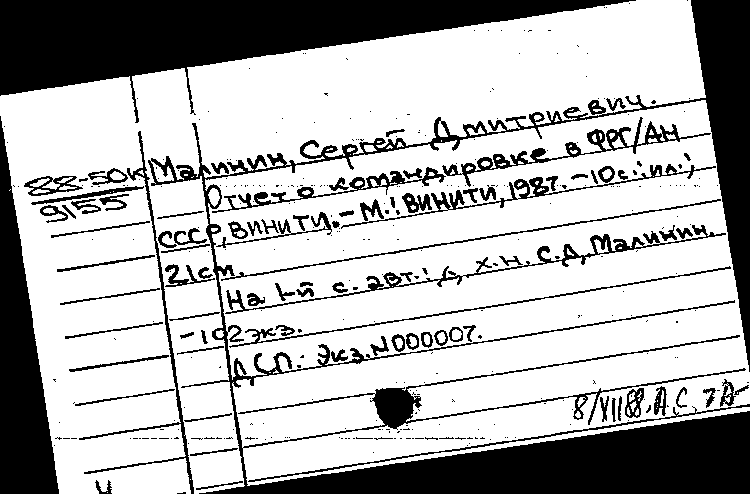 88-50к
9155
Малинин, Сергей Дмитриевич.
Отчет о командировке в ФРГ/АН
СССР, ВИНИТИ. - М.: ВИНИТИ, 1987. - 10с.: ил.;
21см.
На 1-й с. авт.: Д. х. н. С.Д. Малинин.
- 102экз.
ДСП: Экз.N000007.
8/VII88. А.С.
Ч